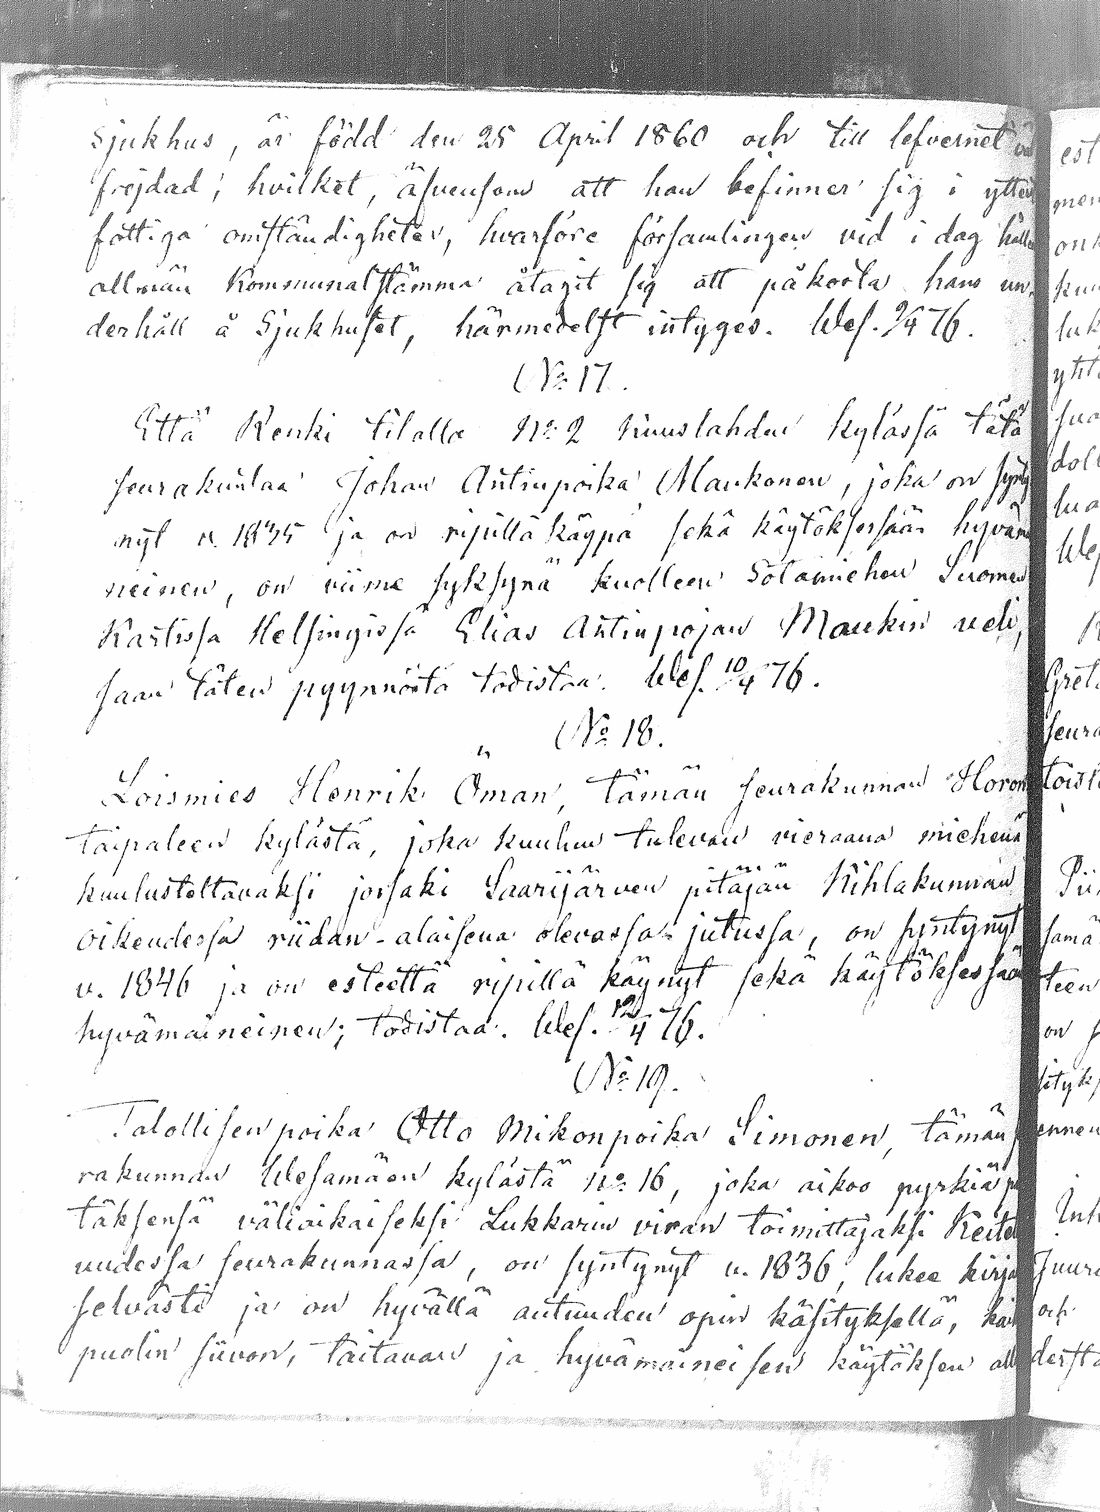 Sjukhus, är född den 25 April 1860 och till lefvernet
frejdad; hvilket, äfvensom att han befinner sig i
fattiga omständigheter, hvarföre församlingen vid i dag
allmän Kommunalstämma åtagit sig att påkosta hans un-
derhåll å Sjukhuset, härmedelst intyges. Wes. 9/4 76.
No 17.
Että Renki tilalla No 2 Niinislahden kylässä tätä
seurakuntaa Johan Antinpoika Maukonen, joka on synty
nyt v. 1835 ja on ripillä käypä sekä käytöksessään hyväm
neinen, on viime syksynä kuolleen Sotamiehen Suomen
Kartissa Helsingissä Elias Antinpojan Maukin veli,
saan täten pyynnöstä todistaa. Wes. 10/4 76.
No 18.
Loismies Henrik Öman, tämän seurakunnan Horon
taipaleen kylästä, joka kuuluu tulevan vieraana miehenä
kuulusteltavaksi jossaki Saarijärven pitäjän Kihlakunnan
oikeudessa riidan-alaisena olevassa jutussa, on syntynyt
v. 1846 ja on esteettä ripillä käynyt sekä käytöksessään
hyvämaineinen; todistaa. Wes. 12/4 76.
No 19.
Talollisen poika Otto Mikonpoika Simonen, tämän
rakunnan Wesamäen kylästä No 16, joka aikoo pyrkiä
täksensä väliaikaiseksi Lukkarin viran toimittajaksi Keitel
uudessa seurakunnassa, on syntynyt v. 1836, lukee kirja
selvästi ja on hyvällä autuuden opin käsityksellä,
puolin siivon, taitavan ja hyvämaineisen käytöksen